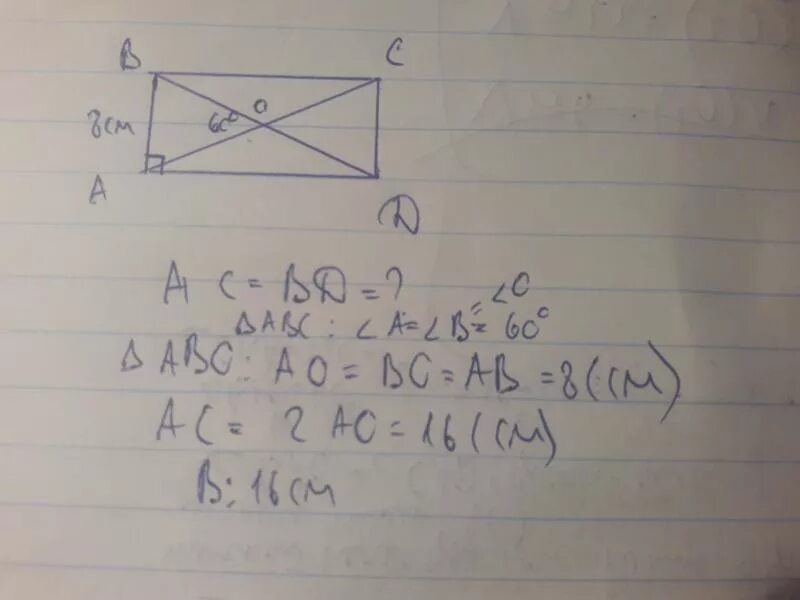 B C
8см 60° O
A D
AC = BD = ?
= ∠O
ΔABO: ∠A = ∠B = 60°
ΔABO: AO = BO = AB = 8(см)
AC = 2 AO = 16(см)
В: 16см